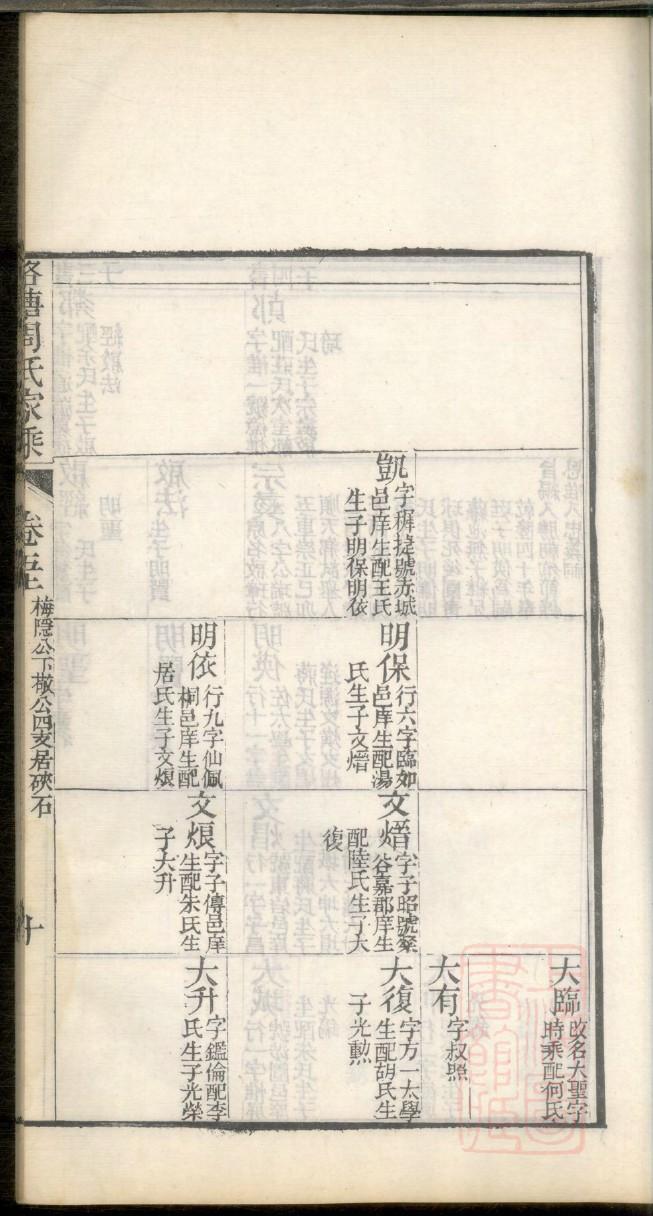 凱
字穉捷號赤城
邑庠生配王氏
生子明保明依
明保
行六字臨如
邑庠生配湯
氏生子文熸
明依
行九字仙佩
桐邑庠生配
居氏生子文烺
文熸
字子昭號燊
谷嘉郡庠生
配陸氏生子大
復
文烺
字子傳邑庠
生配朱氏生
子大升
大臨
改名大聖字
時乘配何氏
大有
字叔照
大復
字方一太學
生配胡氏生
子光勲
大升
字鑑倫配李
氏生子光榮
洛塘周氏家乘
卷五
梅隱公下敬公四支居硤石
十